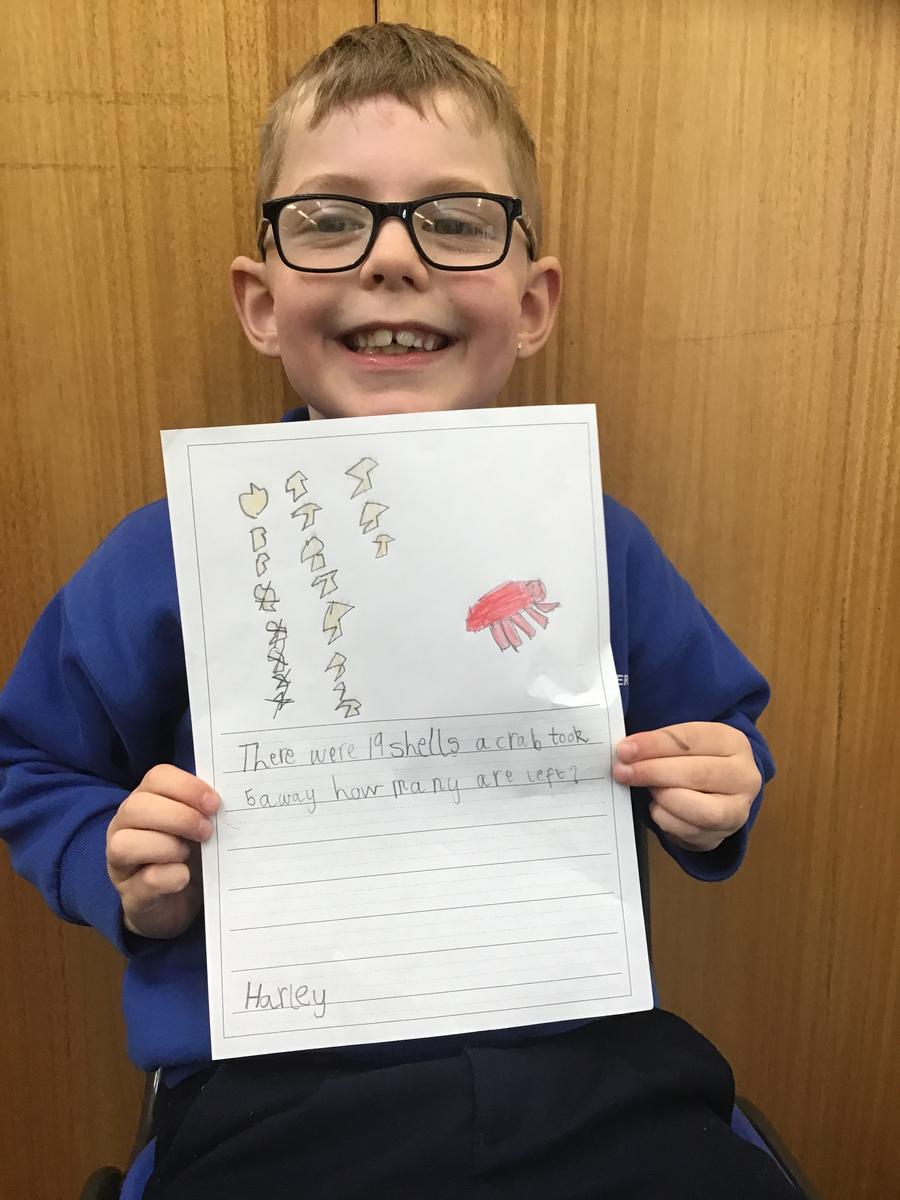 ER
There were 19 shells a crab took
5 away how many are left?
Harley